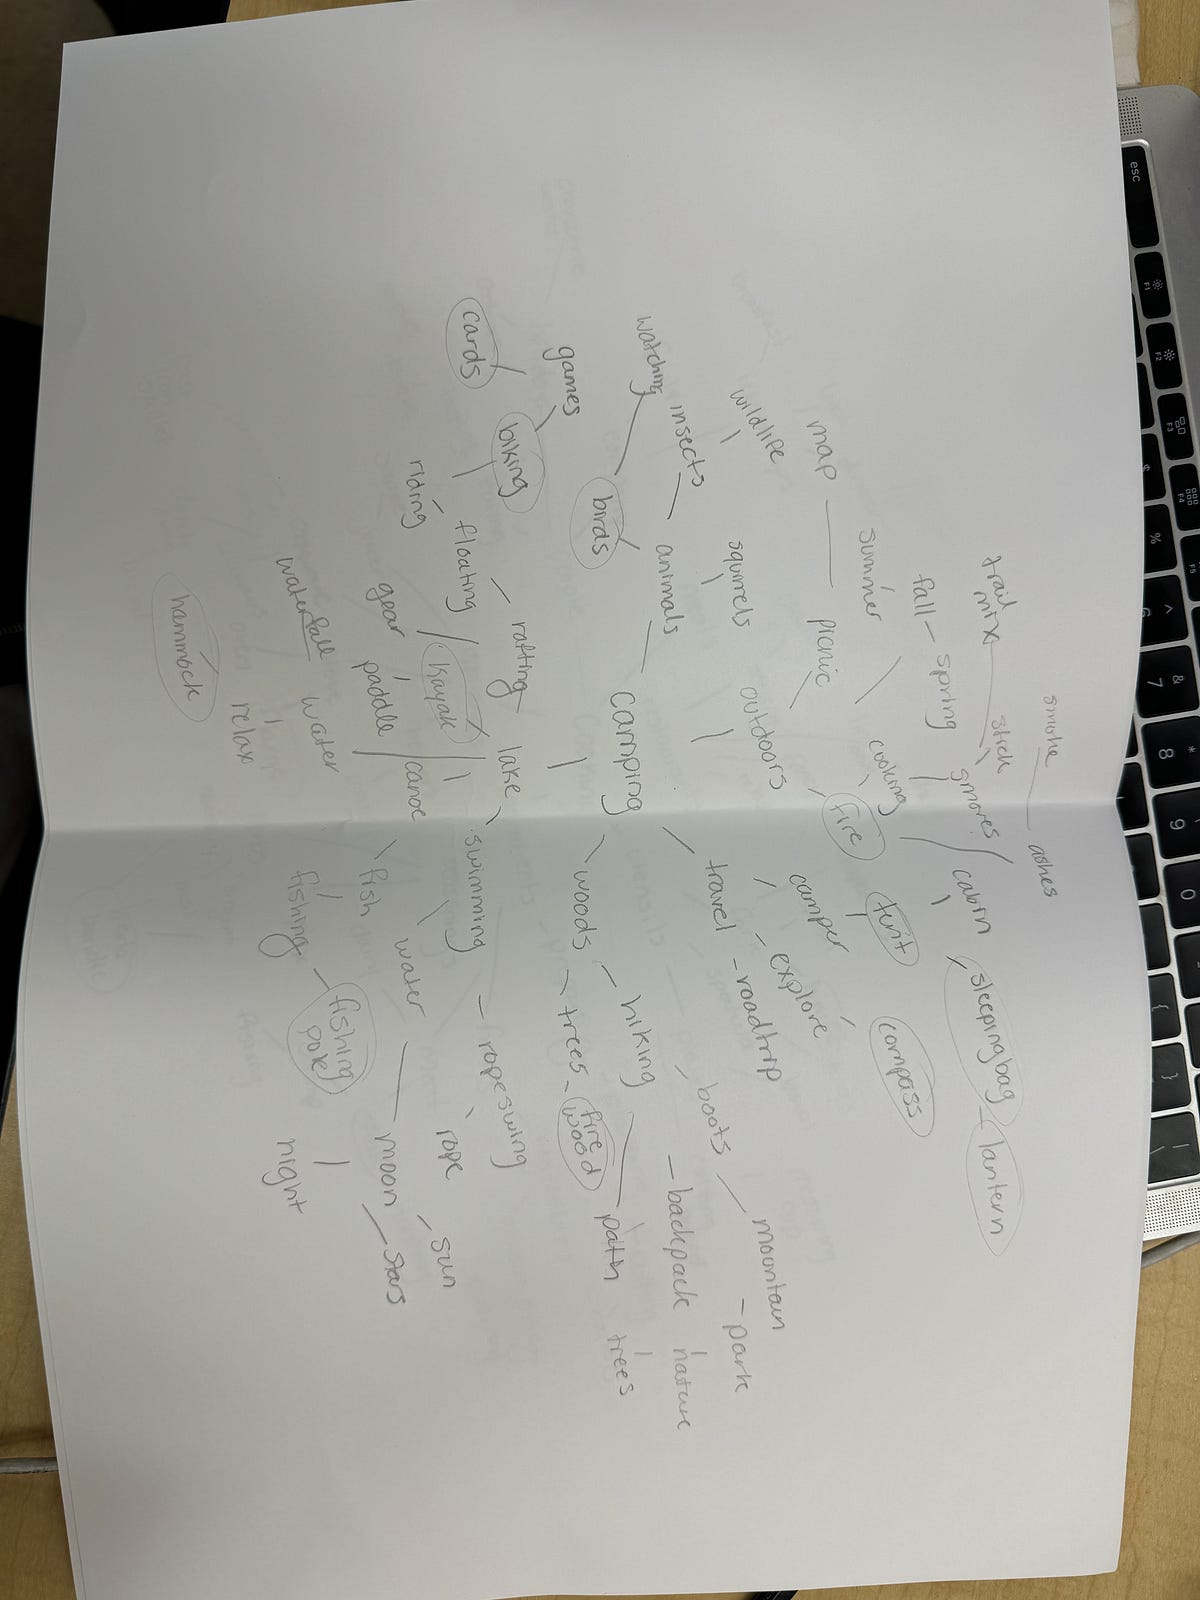 smoke
ashes
trail
mix
stick
fall
spring
smores
cabin
sleepingbag
lantern
summer
cooking
fire
tent
compass
map
picnic
camper
explore
wildlife
squirrels
outdoors
travel
roadtrip
boots
mountain
park
watching
insects
animals
birds
camping
woods
hiking
trees
fire
wood
backpack
nature
path
trees
games
cards
biking
riding
floating
rafting
kayak
lake
swimming
ropeswing
rope
sun
gear
paddle
canoe
fish
water
moon
stars
waterfall
water
fishing
fishing
pole
night
relax
hammock
esc
F1
F2
F3
F4
F5
$
%
^
6
&
7
*
8
9
0
{
}
|
\